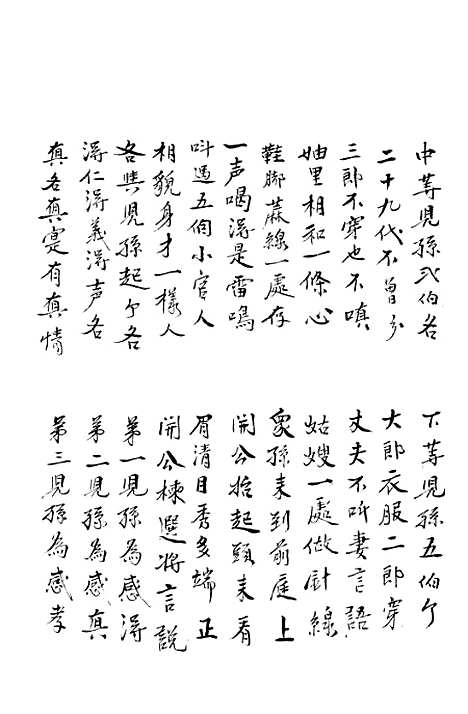 中等児孫弍伯名
下等児孫五伯个
二十九代不曽分
大郎衣服二郎穿
三郎不穿也不嗔
丈夫不听妻言語
妯里相和一條心
姑嫂一處做針線
鞋脚蔴線一處存
衆孫来到前庭上
一声喝得是雷鳴
開公抬起頭来看
呌過五個小官人
眉清目秀多端正
相貌身才一樣人
開公揀選将言說
各與児孫起个名
第一児孫為感得
得仁得義得声名
第二児孫為感真
真名真寔有真情
第三児孫為感孝